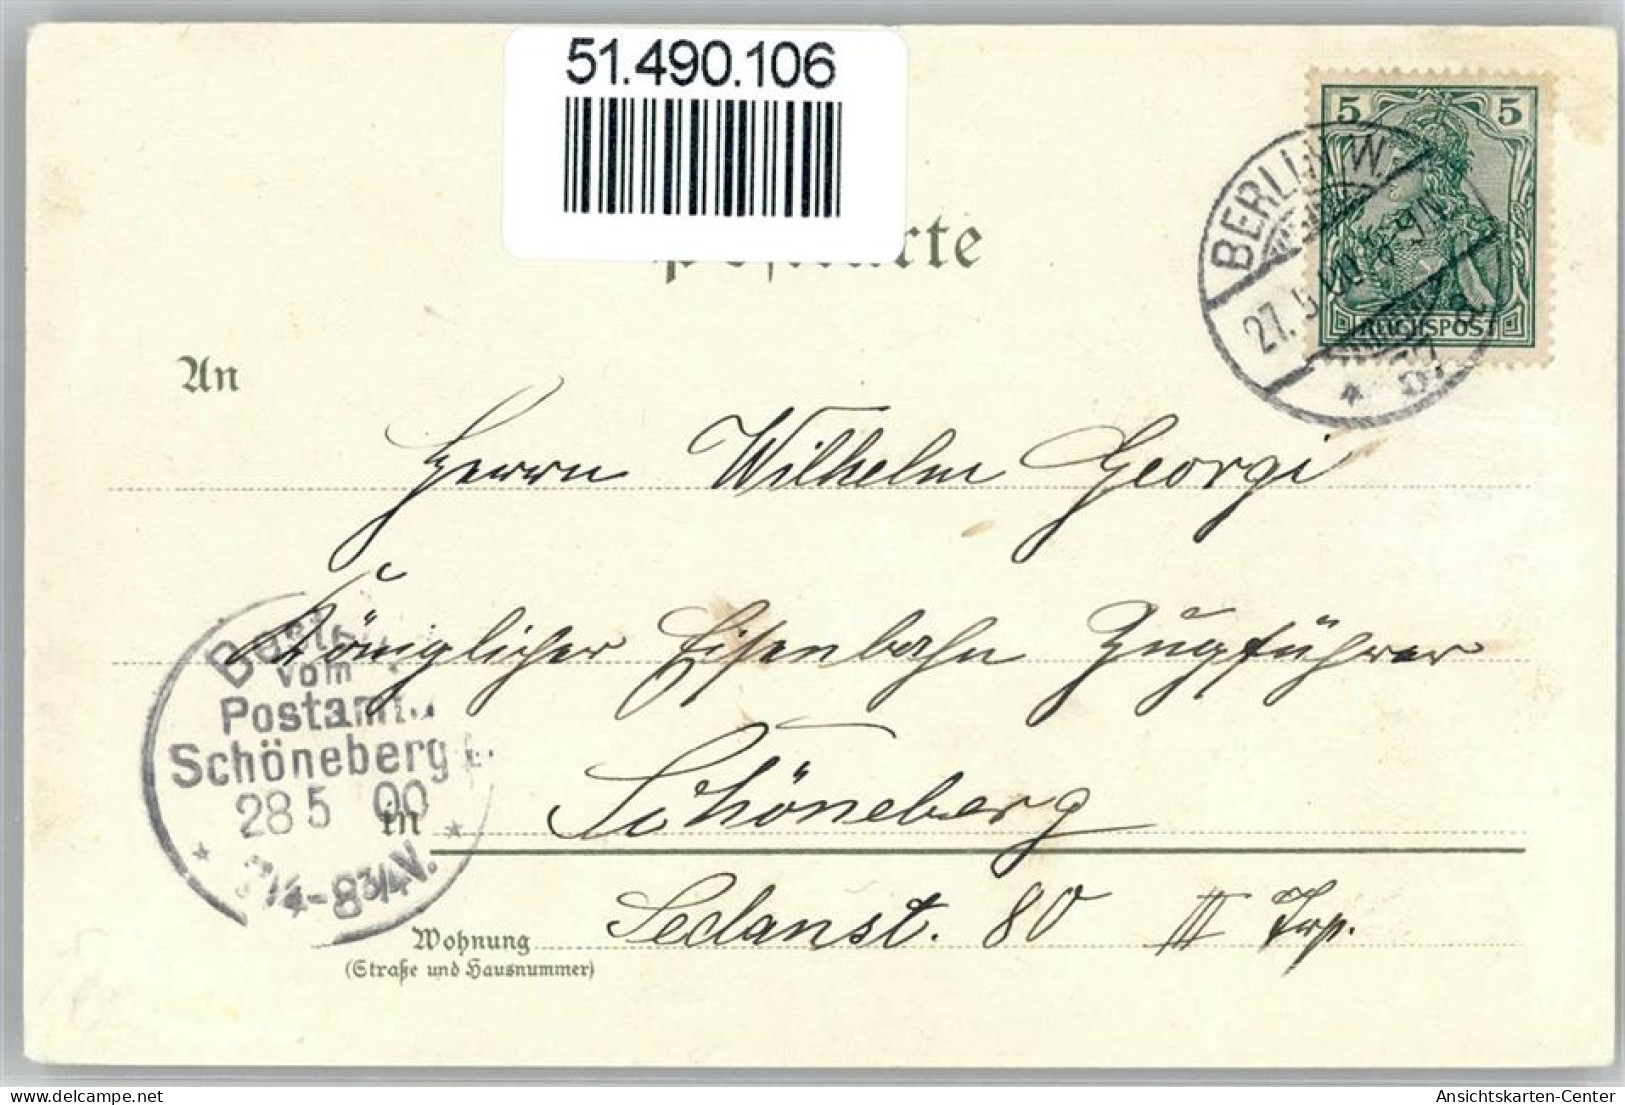 51.490.106
Postkarte
5 5
REICHSPOST
BERLIN W.
27.5.00 8-9N.
* 57
An
Herrn Wilhelm Georgi
Königlicher Eisenbahn Zugführer
Bestellt
vom
Postamte
Schöneberg
28 5 00
7 1/4-8 3/4 V.
in Schöneberg
Wohnung Sedanst. 80 III Trp.
(Straße und Hausnummer)
delcampe.net
Ansichtskarten-Center